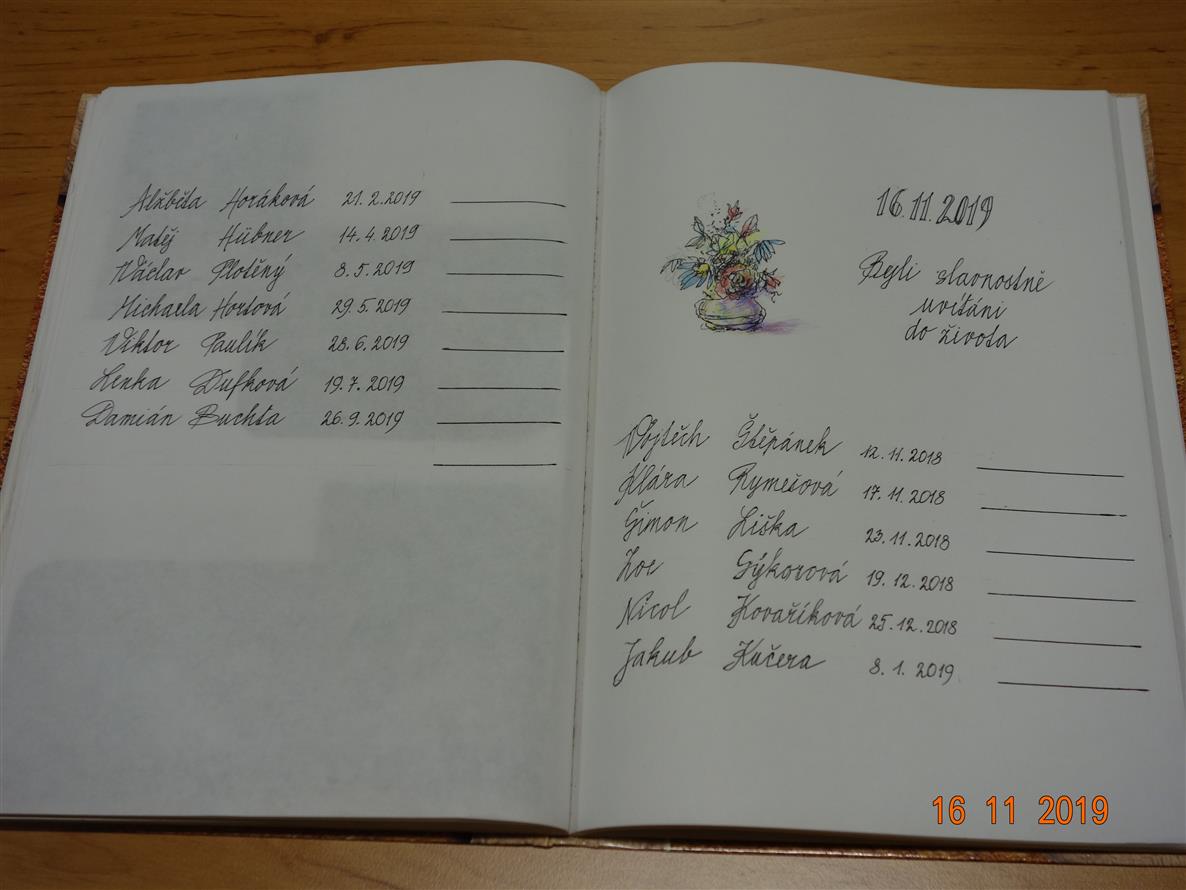 Alžběta Horáková 21. 2. 2019
Matěj Hübner 14. 4. 2019
Václav Plotěný 8. 5. 2019
Michaela Hortová 29. 5. 2019
Viktor Paulík 28. 6. 2019
Lenka Dufková 19. 7. 2019
Damián Buchta 26. 9. 2019
16. 11. 2019
Byli slavnostně
uvítáni
do života
Vojtěch Štěpánek 12. 11. 2018
Klára Rymešová 17. 11. 2018
Šimon Liška 23. 11. 2018
Zoe Sýkorová 19. 12. 2018
Nicol Kovaříková 25. 12. 2018
Jakub Kučera 8. 1. 2019
16 11 2019